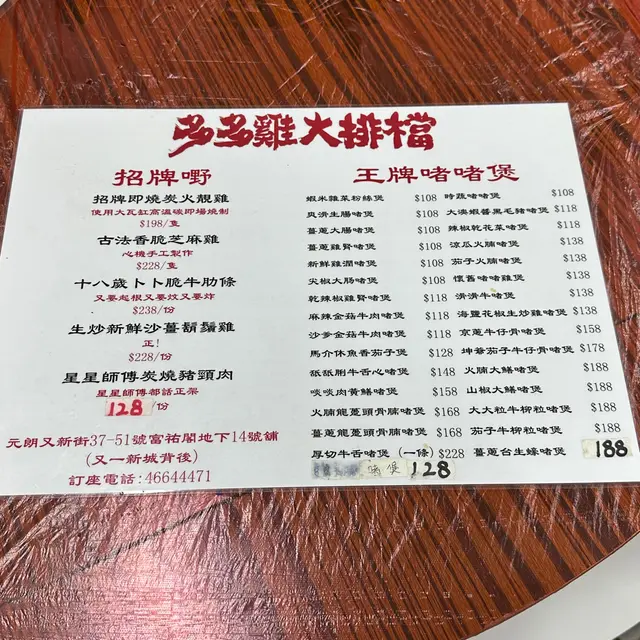 多多雞大排檔
招牌嘢
招牌即燒炭火靚雞
使用大瓦缸高溫碳即場燒制
$198/隻
古法香脆芝麻雞
心機手工製作
$228/隻
十八歲卜卜脆牛肋條
又要起根又要炆又要炸
$238/份
生炒新鮮沙薑鬍鬚雞
正!
$228/份
星星師傅炭燒豬頸肉
星星師傅都話正架
128/份
元朗又新街37-51號富祐閣地下14號舖
(又一新城背後)
訂座電話:46644471
王牌啫啫煲
蝦米雜菜粉絲煲 $108
爽滑生腸啫煲 $108
薑蔥大腸啫煲 $108
薑蔥雞腎啫煲 $108
新鮮雞潤啫煲 $108
尖椒大腸啫煲 $118
乾辣椒雞腎啫煲 $118
麻辣金菇牛肉啫煲 $118
沙爹金菇牛肉啫煲 $118
馬介休魚香茄子煲 $128
舐舐脷牛舌心啫煲 $148
啖啖肉黃鱔啫煲 $158
火腩龍躉頭骨腩啫煲 $168
薑蔥龍躉頭骨腩啫煲 $168
厚切牛舌啫煲 (一條) $228
啫煲 128
時蔬啫啫煲 $108
大澳蝦醬黑毛豬啫煲 $118
辣椒乾花菜啫煲 $118
涼瓜火腩啫煲 $138
茄子火腩啫煲 $138
懷舊啫啫雞煲 $138
滑滑牛啫煲 $138
海鹽花椒生炒雞啫煲 $138
京蔥牛仔骨啫煲 $158
坤爺茄子牛仔骨啫煲 $178
火腩大鱔啫煲 $188
山椒大鱔啫煲 $188
大大粒牛柳粒啫煲 $188
茄子牛柳粒啫煲 $188
薑蔥台生蠔啫煲 188